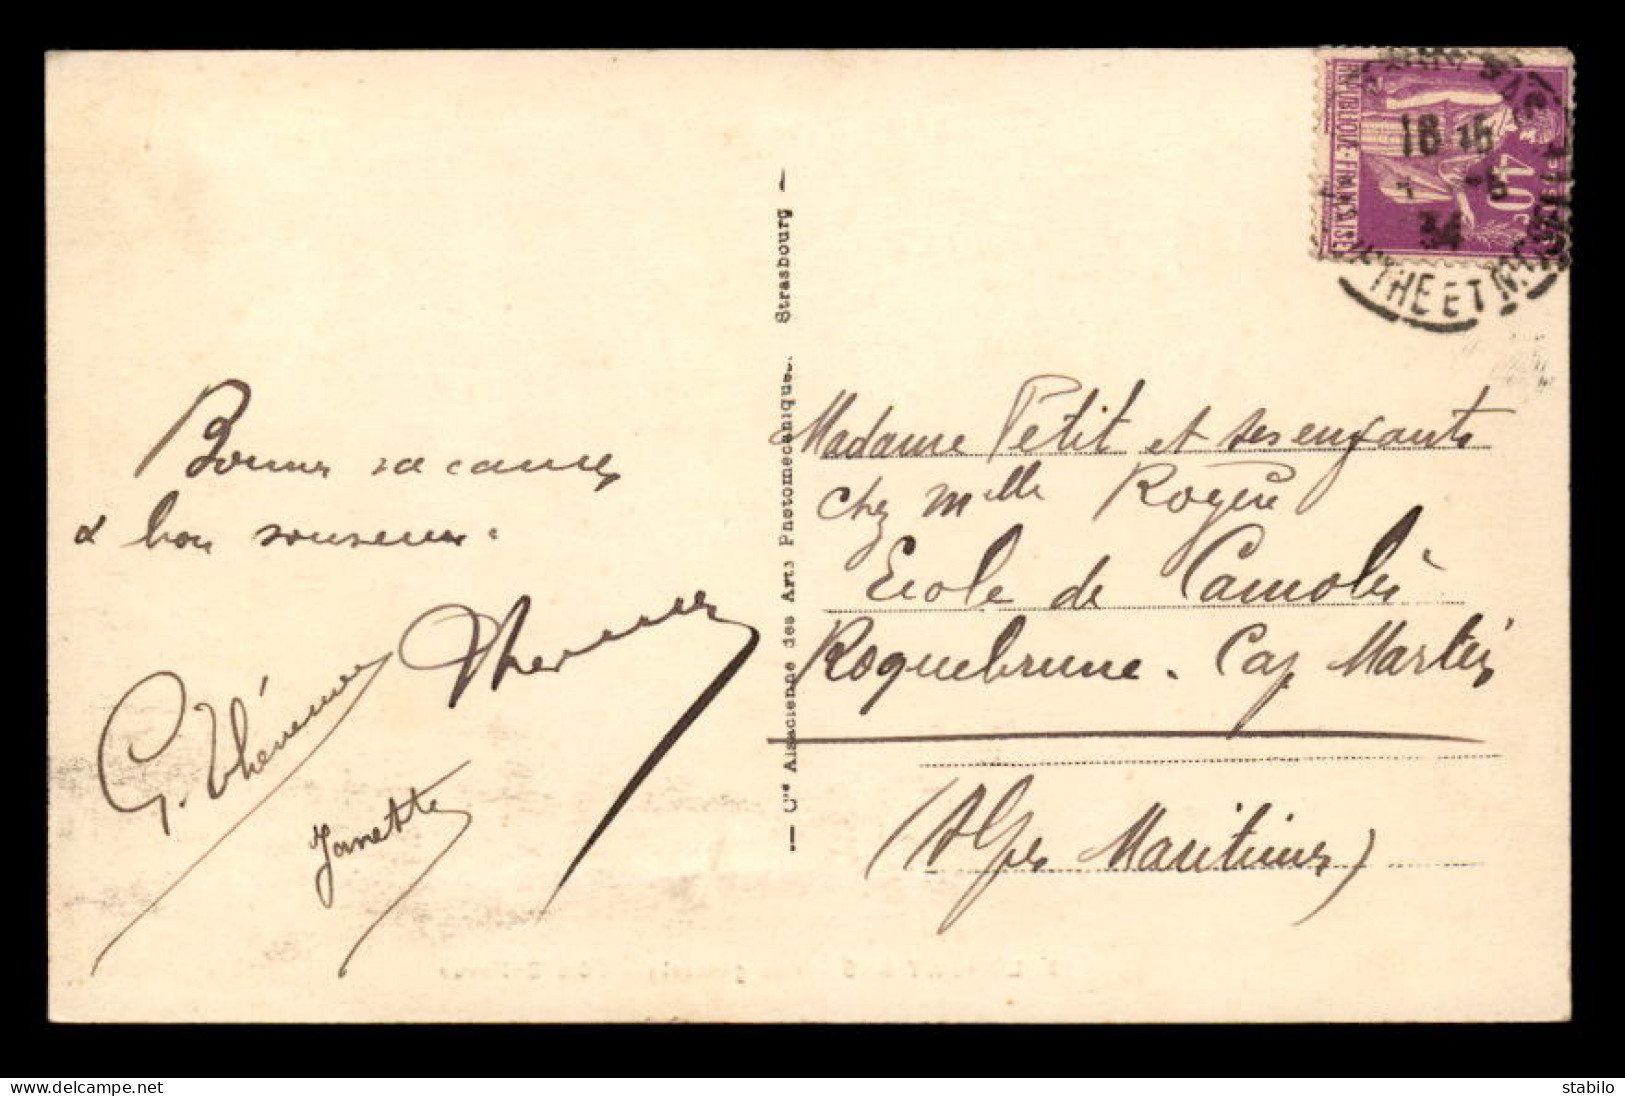 Bonnes vacances
& bon souvenir.
G. Thévenet
Janette
— Cie Alsacienne des Arts Photomécaniques. Strasbourg —
REPUBLIQUE FRANÇAISE
40c
18 15
34
THE ET M
Madame Petit et ses enfants
chez Melle Royère
Ecole de Carnolès
Roquebrune. Cap Martin
(Alpes Maritimes)
delcampe.net
stabilo